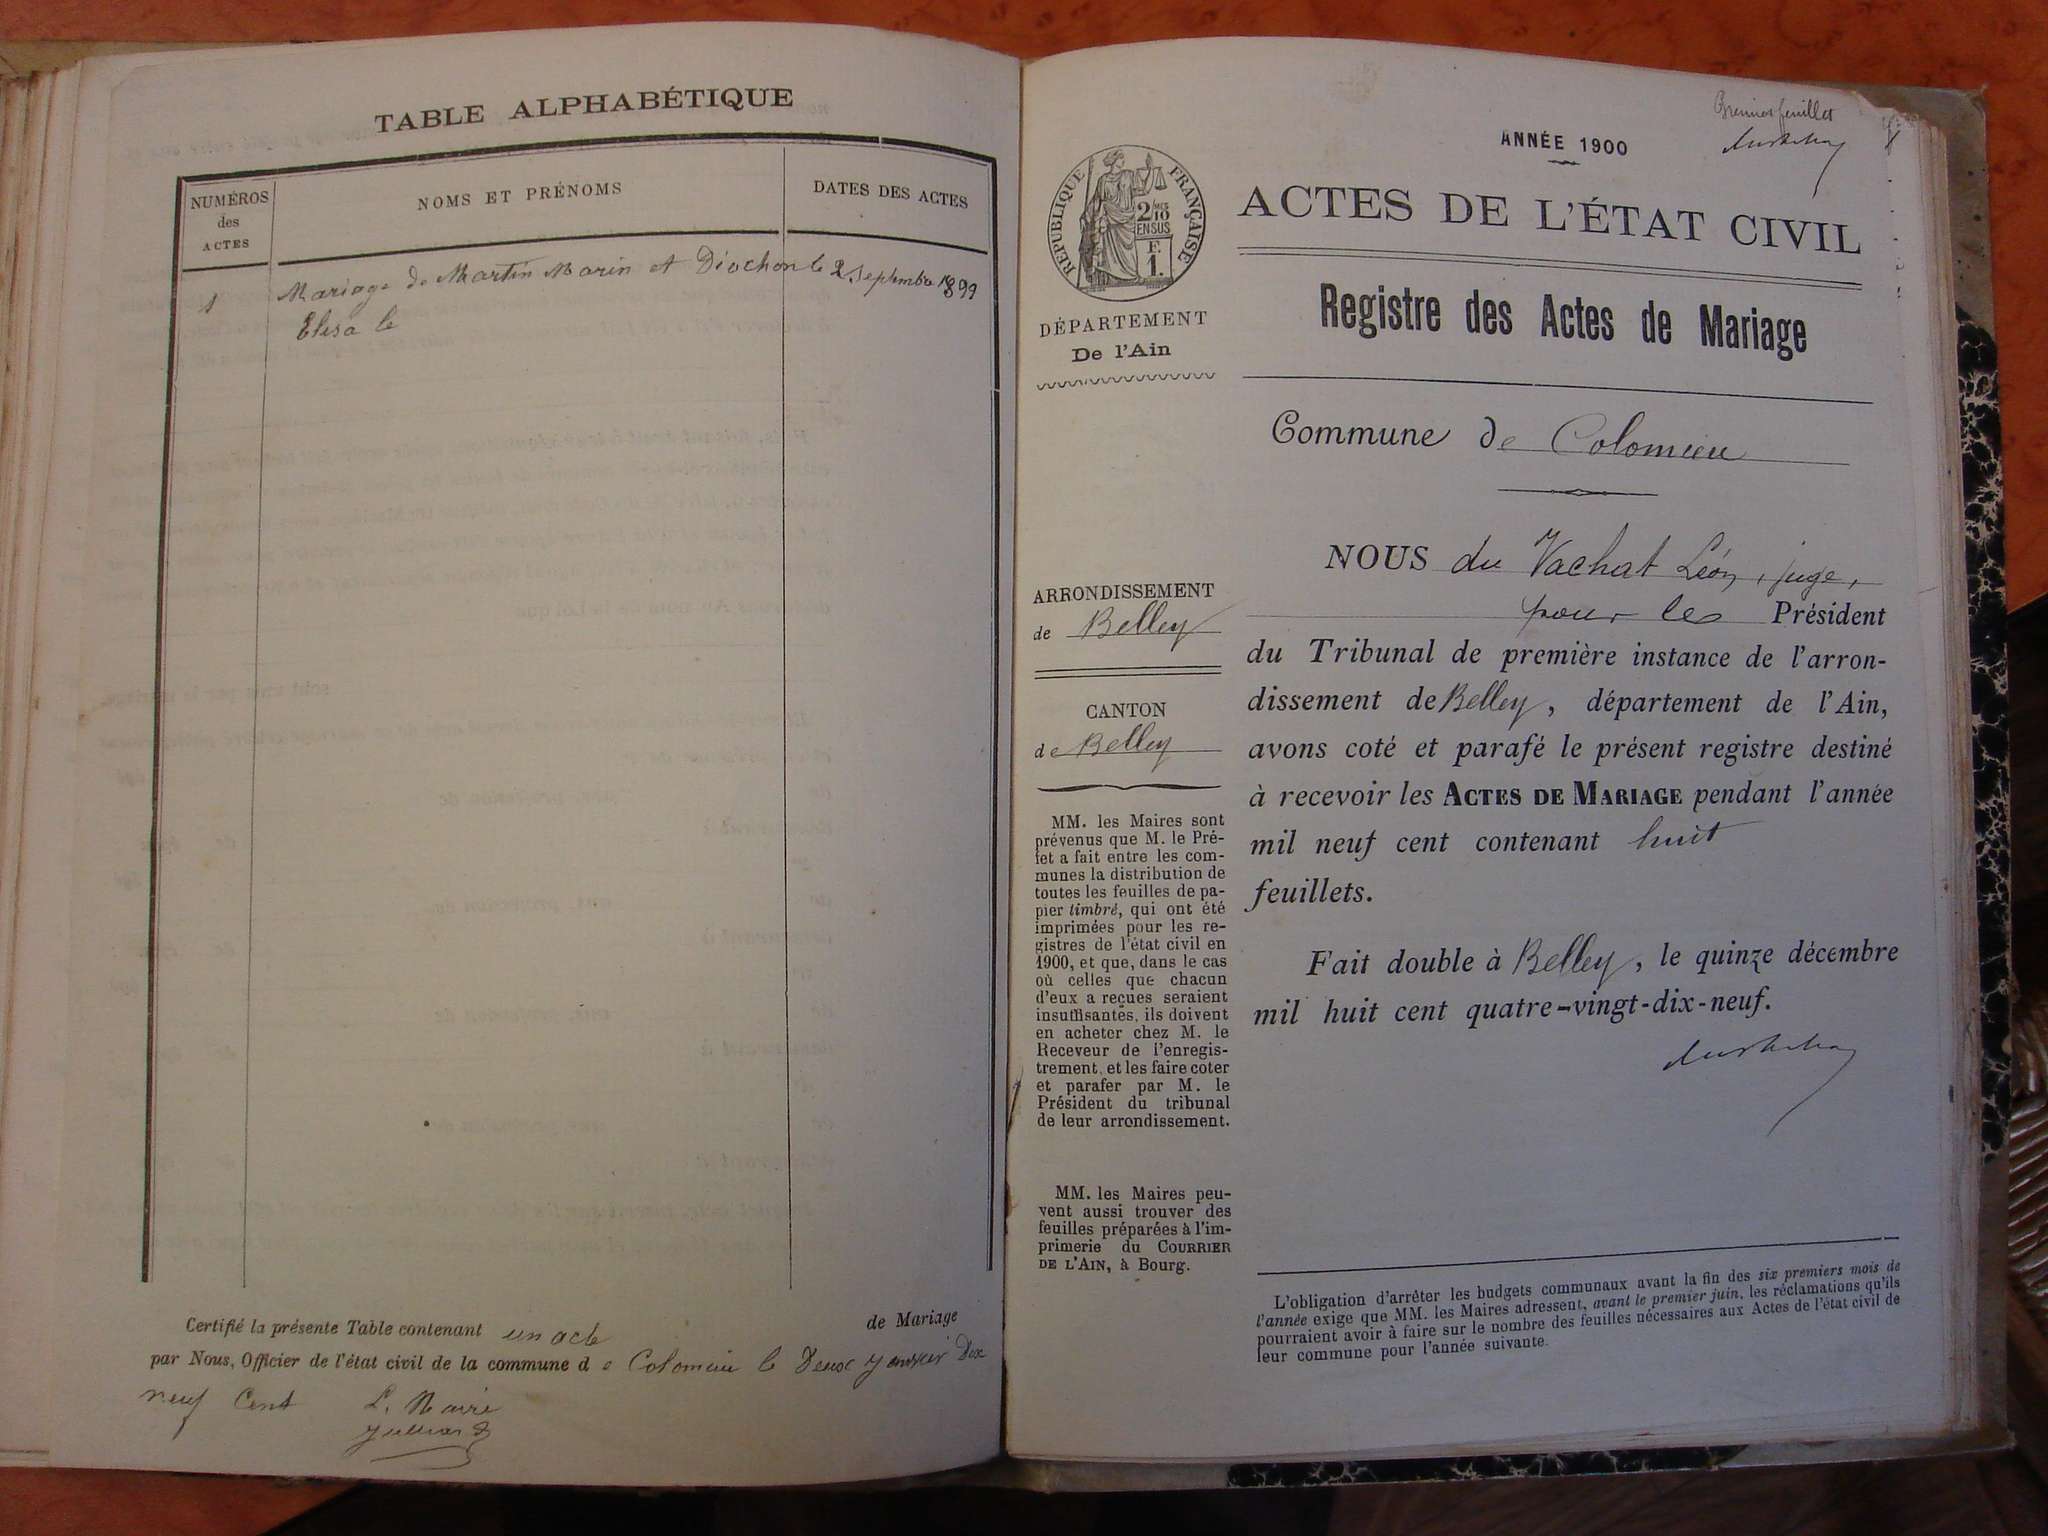 TABLE ALPHABÉTIQUE
NUMÉROS
des
ACTES
NOMS ET PRÉNOMS
DATES DES ACTES
1
Mariage de Martin Marin et Diochon le 2 septembre 1899
Elisa le
Certifié la présente Table contenant un acte de Mariage
par Nous, Officier de l'état civil de la commune de Colomieu le Deux janvier Dix
neuf Cent
L. Maire
ANNÉE 1900
Premier feuillet
RÉPUBLIQUE FRANÇAISE
2/10
EN SUS
F.
1.
DÉPARTEMENT
De l'Ain
ACTES DE L'ÉTAT CIVIL
Registre des Actes de Mariage
Commune de Colomieu
ARRONDISSEMENT
de Belley
CANTON
de Belley
MM. les Maires sont
prévenus que M. le Pré-
fet a fait entre les com-
munes la distribution de
toutes les feuilles de pa-
pier timbré, qui ont été
imprimées pour les re-
gistres de l'état civil en
1900, et que, dans le cas
où celles que chacun
d'eux a reçues seraient
insuffisantes, ils doivent
en acheter chez M. le
Receveur de l'enregis-
trement, et les faire coter
et parafer par M. le
Président du tribunal
de leur arrondissement.
MM. les Maires peu-
vent aussi trouver des
feuilles préparées à l'im-
primerie du COURRIER
DE L'AIN, à Bourg.
NOUS du Vachat Léon, juge,
pour les Président
du Tribunal de première instance de l'arron-
dissement de Belley, département de l'Ain,
avons coté et parafé le présent registre destiné
à recevoir les ACTES DE MARIAGE pendant l'année
mil neuf cent contenant huit
feuillets.
Fait double à Belley, le quinze décembre
mil huit cent quatre-vingt-dix-neuf.
L'obligation d'arrêter les budgets communaux avant la fin des six premiers mois de
l'année exige que MM. les Maires adressent, avant le premier juin, les réclamations qu'ils
pourraient avoir à faire sur le nombre des feuilles nécessaires aux Actes de l'état civil de
leur commune pour l'année suivante.